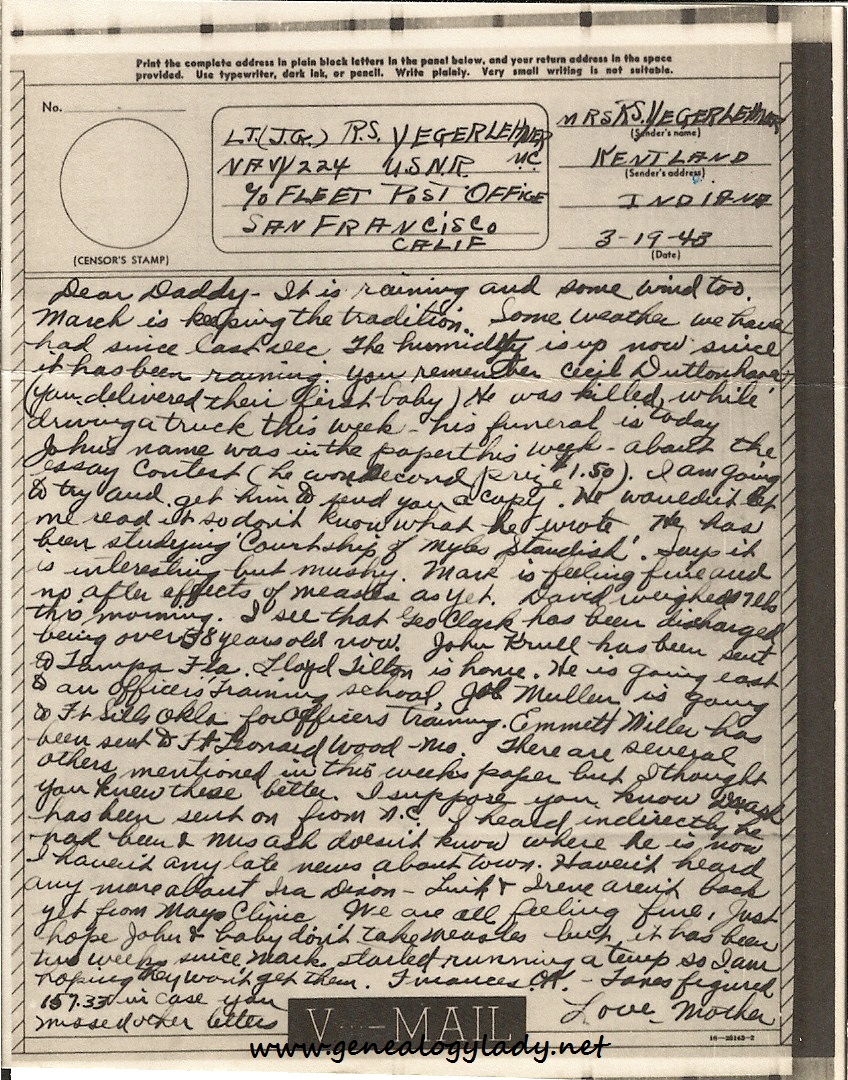 Print the complete address in plain block letters in the panel below, and your return address in the space
provided. Use typewriter, dark ink, or pencil. Write plainly. Very small writing is not suitable.
No.
(CENSOR'S STAMP)
LT.(J.G.) R.S. VEGERLEHNER
NAVY 224 U.S.N.R. M.C.
% FLEET POST OFFICE
SAN FRANCISCO
CALIF
MRS R.S. VEGERLEHNER
(Sender's name)
KENTLAND
(Sender's address)
INDIANA
3-19-43
(Date)
Dear Daddy - It is raining and some wind too.
March is keeping the tradition. Some weather we have
had since last Dec. The humidity is up now since
it has been raining. You remember Cecil Duttonhaver
(you delivered their first baby) He was killed while
driving a truck this week - his funeral is today
John's name was in the paper this week - about the
essay contest (he won second prize $1.50). I am going
to try and get him to send you a copy. He wouldn't let
me read it so don't know what he wrote He has
been studying 'Courtship of Myles Standish'. Says it
is interesting but mushy. Mark is feeling fine and
no after effects of measles as yet. David weighed 17 lbs
this morning. I see that Geo Clark has been discharged
being over 38 years old now. John Krull has been sent
to Tampa Fla. Lloyd Tilton is home. He is going east
to an Officers Training school, Joe Mullen is going
to Ft Sills Okla for Officers training. Emmett Miller has
been sent to Ft Leonard Wood - Mo. There are several
others mentioned in this weeks paper but I thought
you knew these better. I suppose you know Dr Ash
has been sent on from N.C. I heard indirectly he
had been & Mrs Ash doesn't know where he is now
I haven't any late news about town. Haven't heard
any more about Ira Dixon - Luik & Irene aren't back
yet from Mayo Clinic We are all feeling fine, Just
hope John & baby don't take measles but it has been
two weeks since Mark started running a temp so I am
hoping they won't get them. Finances O.K. - Taxes figured
157.33 in case you
missed other letters
Love - Mother
V···-MAIL
16-28143-2
www.genealogylady.net